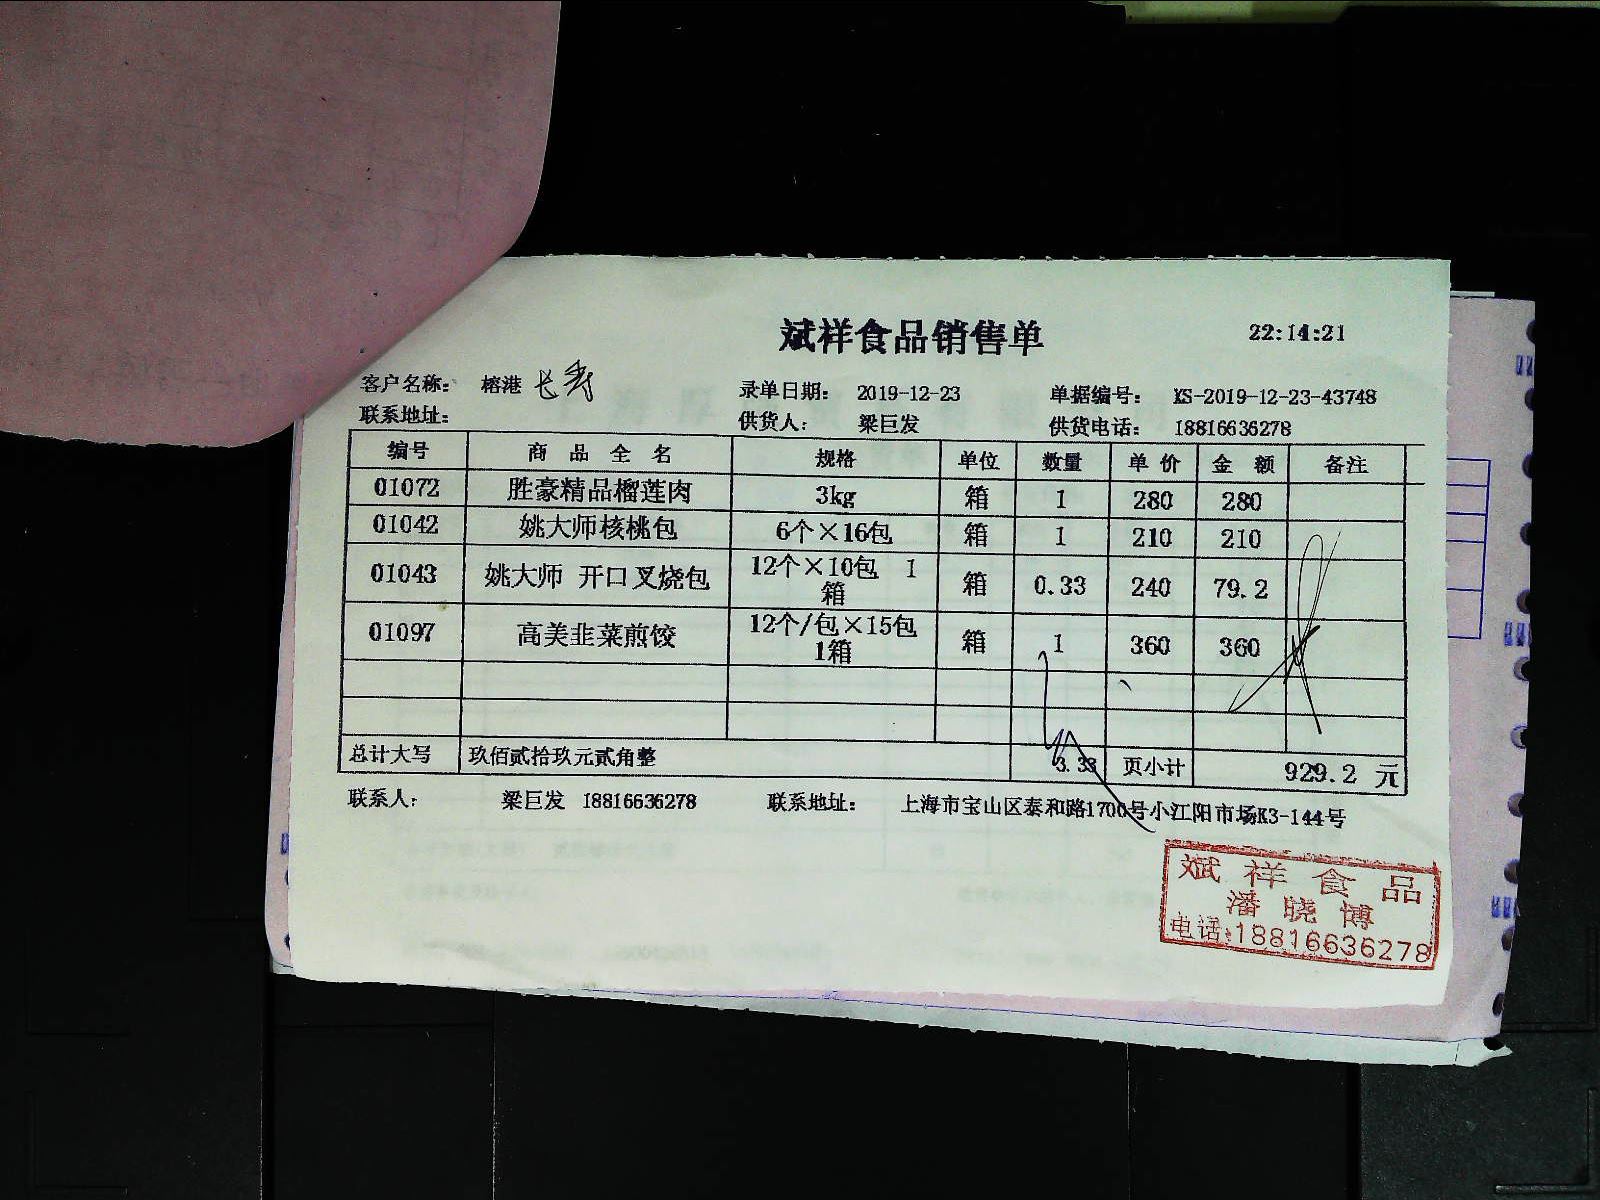 斌祥食品销售单 22:14:21
客户名称： 榕港 长寿 录单日期： 2019-12-23 单据编号： XS-2019-12-23-43748
联系地址： 供货人： 梁巨发 供货电话： 18816636278
编号 商品全名 规格 单位 数量 单价 金额 备注
01072 胜豪精品榴莲肉 3kg 箱 1 280 280
01042 姚大师核桃包 6个×16包 箱 1 210 210
01043 姚大师 开口叉烧包 12个×10包 1箱 箱 0.33 240 79.2
01097 高美韭菜煎饺 12个/包×15包 1箱 箱 1 360 360
总计大写 玖佰贰拾玖元贰角整 3.33 页小计 929.2 元
联系人： 梁巨发 18816636278 联系地址： 上海市宝山区泰和路1700号小江阳市场K3-144号
斌祥食品
潘晓博
电话:18816636278